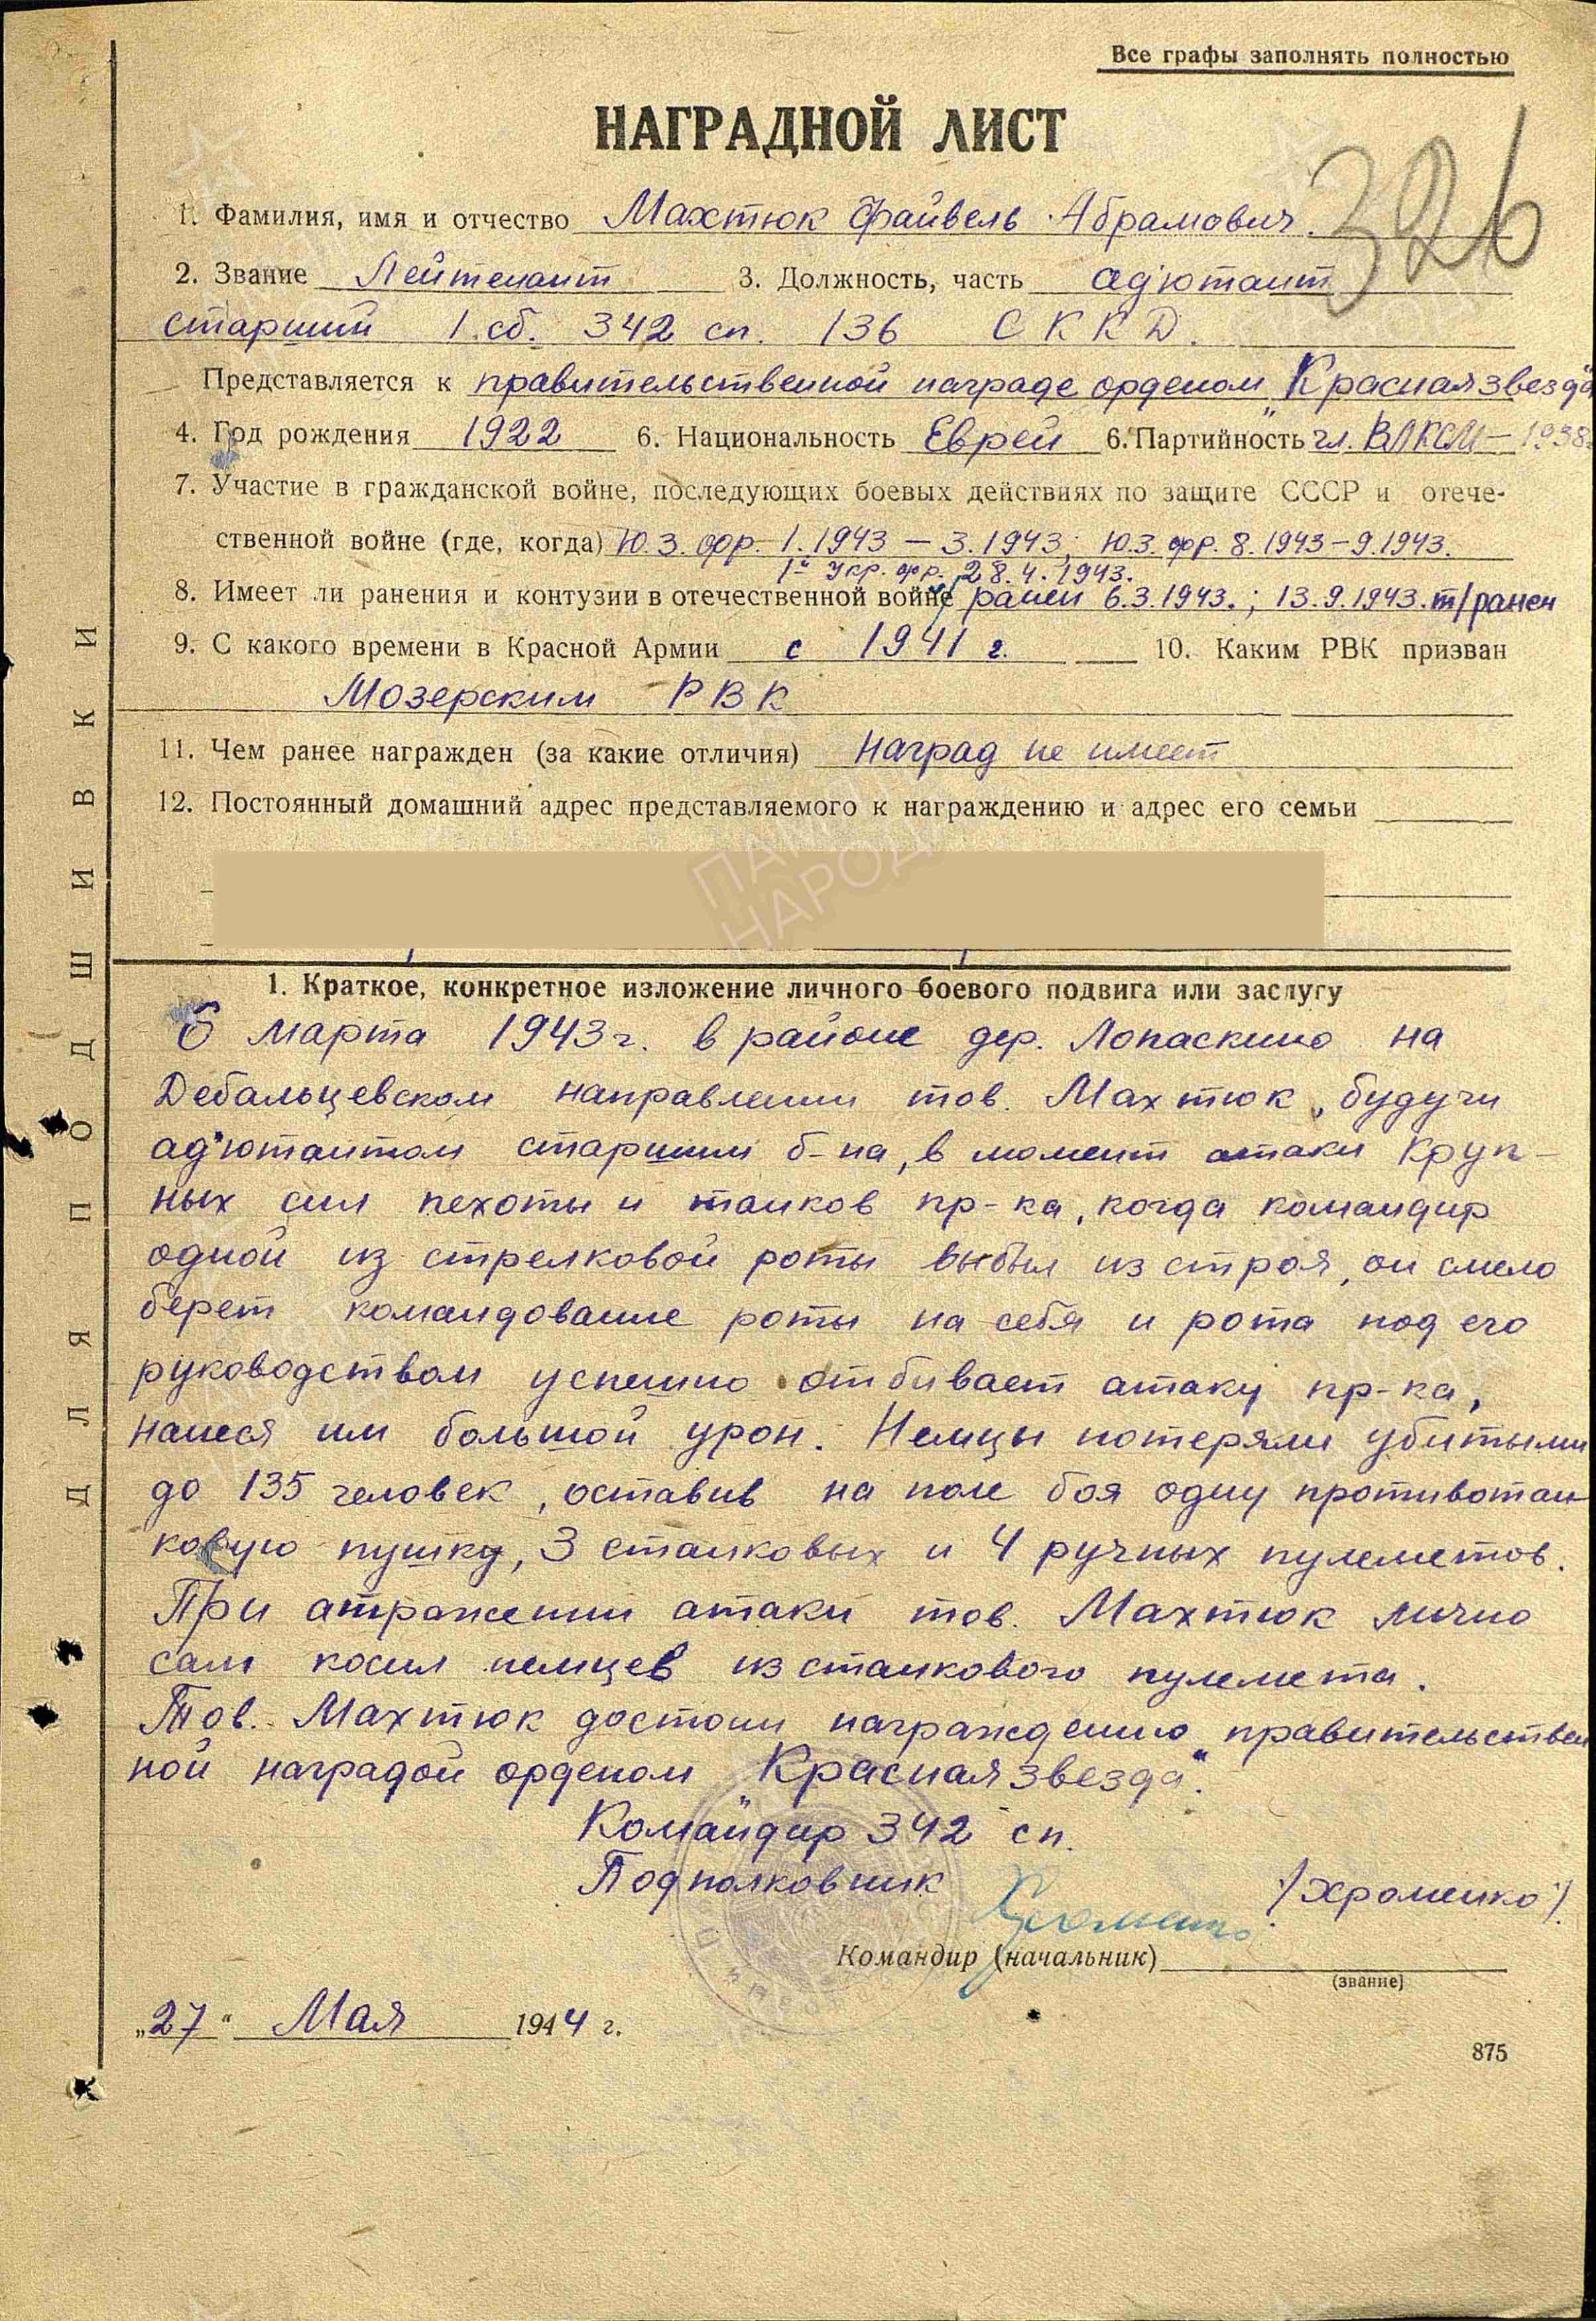 Все графы заполнять полностью
НАГРАДНОЙ ЛИСТ
326
1. Фамилия, имя и отчество Махтюк Файвель Абрамович.
2. Звание Лейтенант 3. Должность, часть ад'ютант
старший 1.сб. 342 сп. 136 СККД.
Представляется к правительственной награде орденом "Красная звезда"
4. Год рождения 1922 6. Национальность Еврей 6. Партийность чл. ВЛКСМ – 1938
7. Участие в гражданской войне, последующих боевых действиях по защите СССР и отече-
ственной войне (где, когда) Ю.З. фр. 1.1943 – 3.1943; Ю.З. фр. 8.1943–9.1943.
1й Укр. фр. 28.4.1943.
8. Имеет ли ранения и контузии в отечественной войне ранен 6.3.1943.; 13.9.1943. т/ранен
9. С какого времени в Красной Армии с 1941 г. 10. Каким РВК призван
Мозерским РВК
11. Чем ранее награжден (за какие отличия) Наград не имеет
12. Постоянный домашний адрес представляемого к награждению и адрес его семьи
ПАМЯТЬ
НАРОДА
1. Краткое, конкретное изложение личного боевого подвига или заслугу
6 марта 1943г. в районе дер. Лопаскино на
Дебальцевском направлении тов. Махтюк, будучи
ад"ютантом старшим б-на, в момент атаки круп-
ных сил пехоты и танков пр-ка, когда командир
одной из стрелковой роты выбыл из строя, он смело
берет командование роты на себя и рота под его
руководством успешно отбивает атаку пр-ка,
нанеся им большой урон. Немцы потеряли убитыми
до 135 человек, оставив на поле боя одну противотан
ковую пушку, 3 станковых и 4 ручных пулеметов.
При атражении атаки тов. Махтюк лично
сам косил немцев из станкового пулемета.
Тов. Махтюк достоин награждению правительствен
ной наградой орденом "Красная звезда".
Командир 342 сп.
Подполковник Хроменко /Хроменко/.
Командир (начальник)
(звание)
„27“ Мая 1944 г.
875
ДЛЯ ПОДШИВКИ